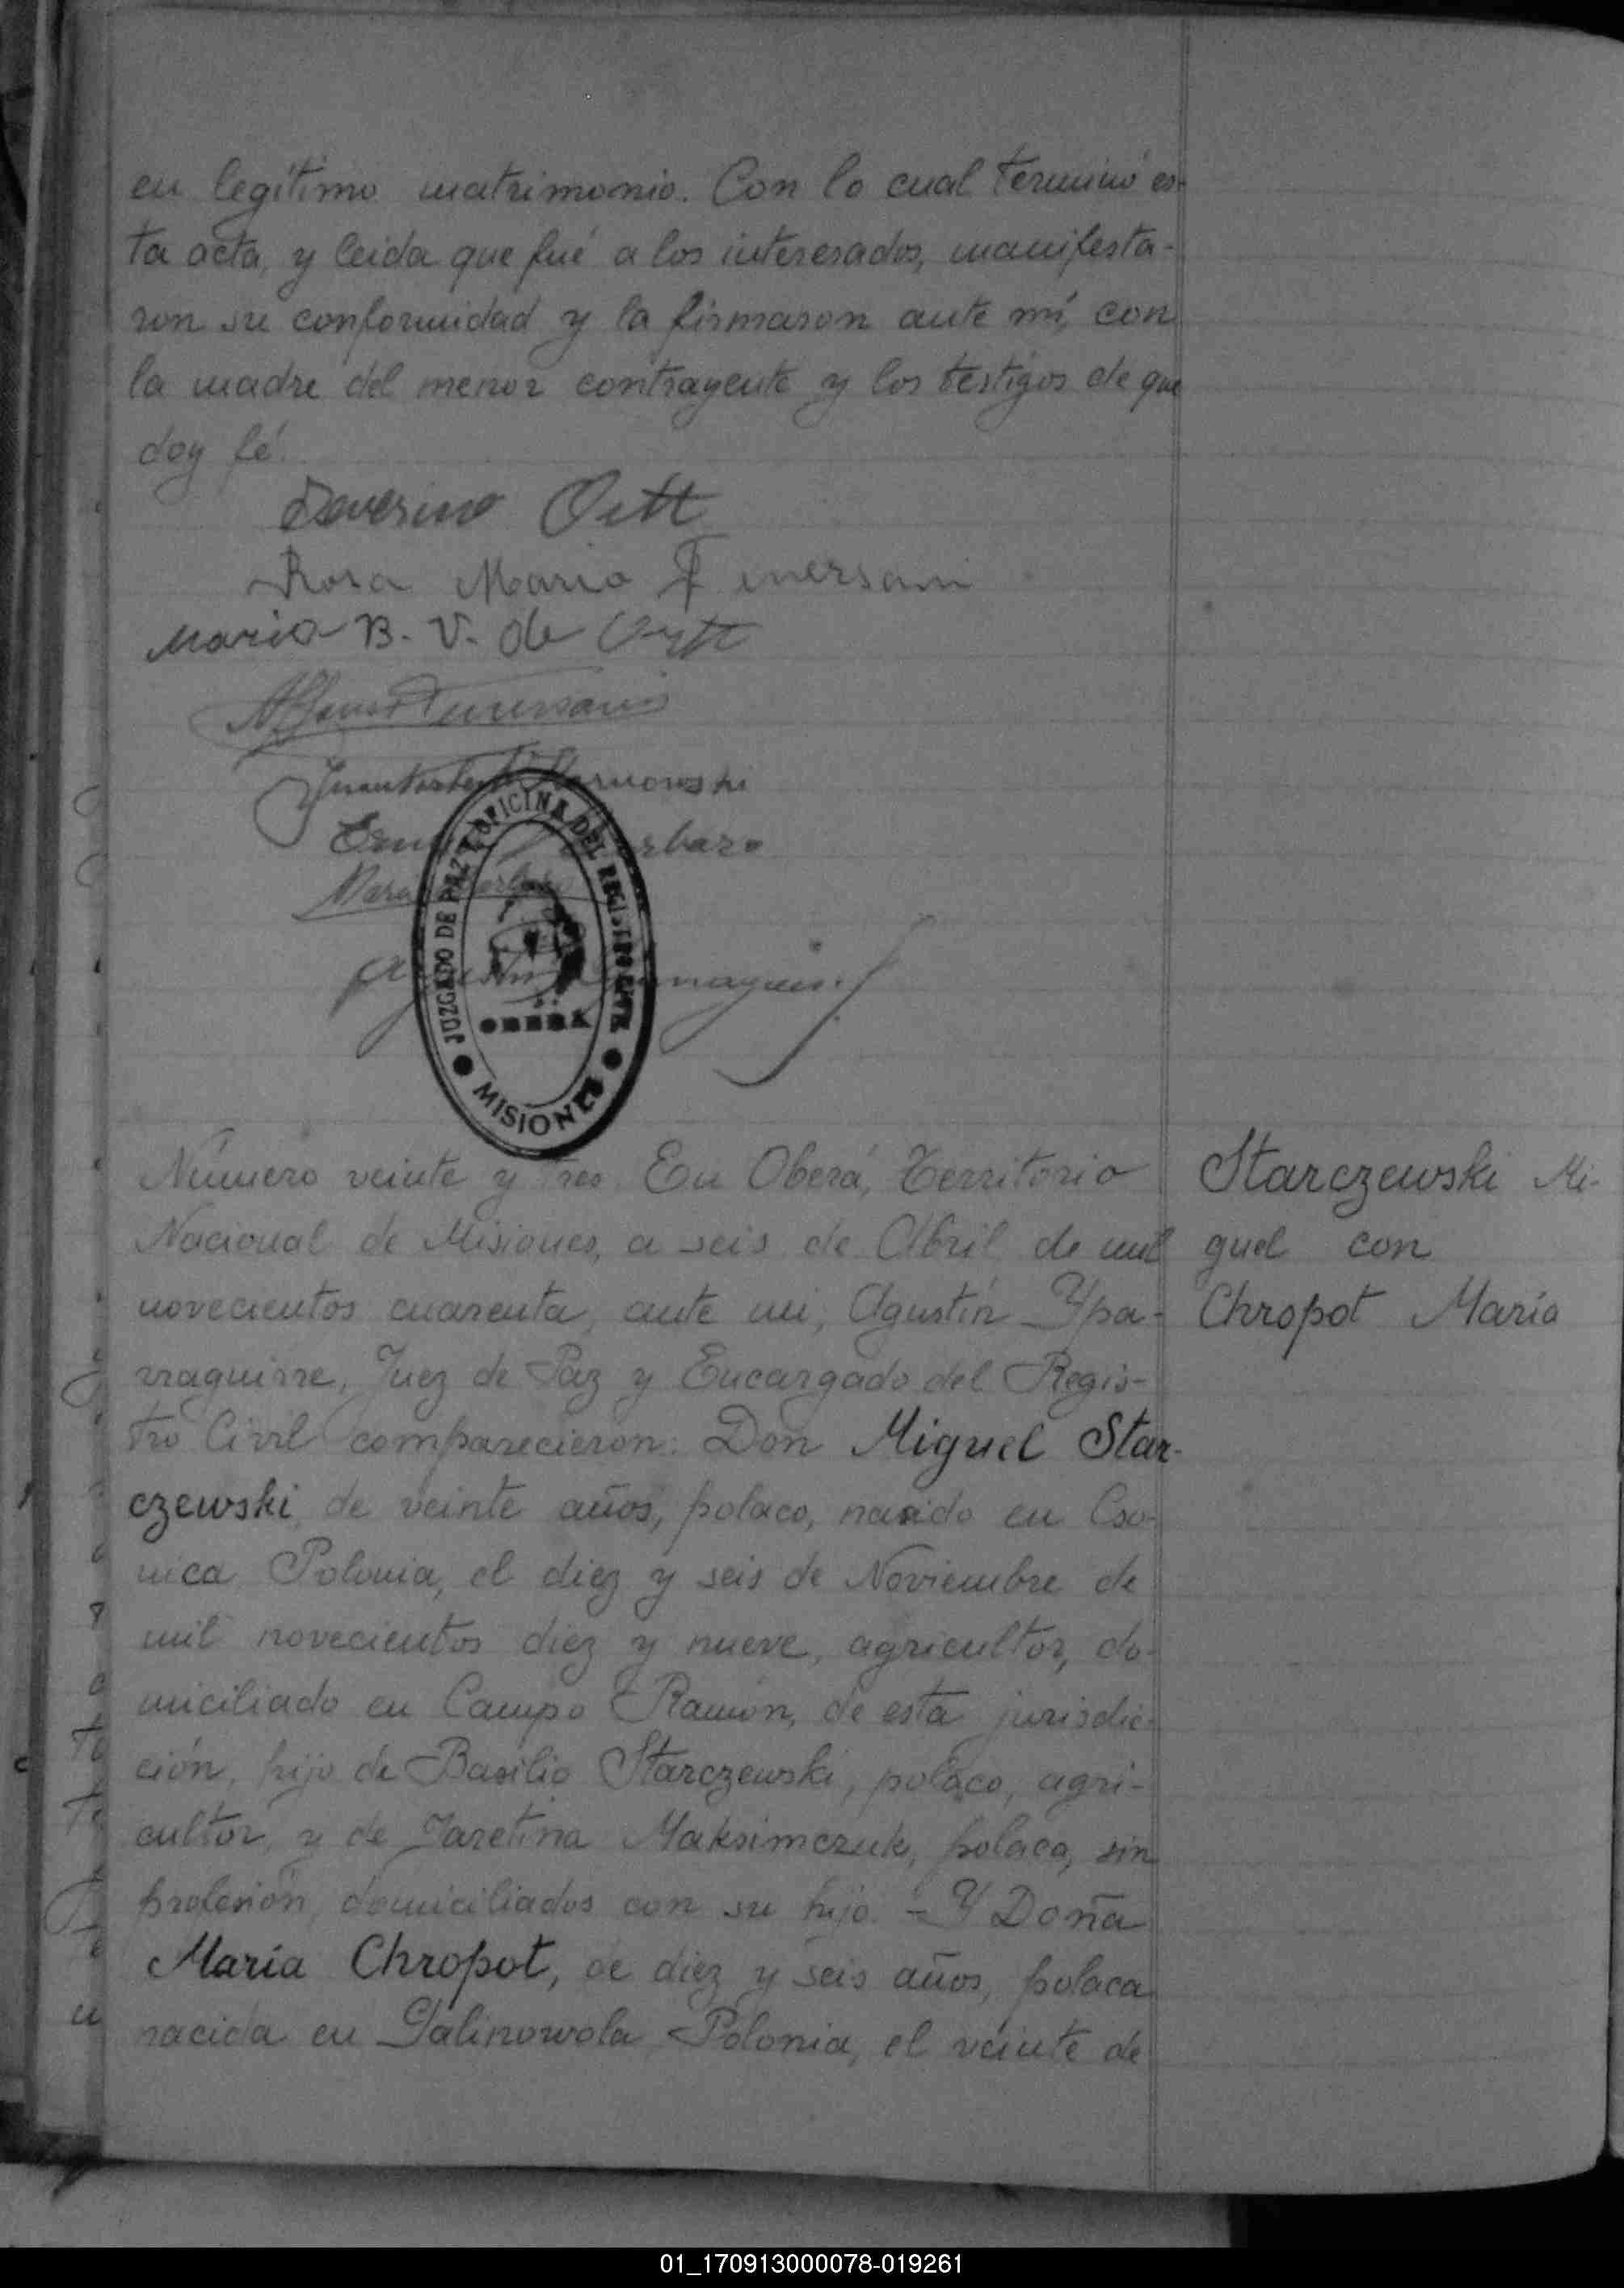 en legítimo matrimonio. Con lo cual terminó es-
ta acta, y leida que fué a los interesados, manifesta-
ron su conformidad y la firmaron ante mí, con
la madre del menor contrayente y los testigos de que
doy fé.
Severino Ott
Rosa Maria
Maria B. V. de
JUZGADO DE PAZ Y OFICINA DEL REGISTRO CIVIL
OBERA
MISIONES
Número veinte y tres. En Oberá, Territorio
Nacional de Misiones, a seis de Abril de mil
novecientos cuarenta, ante mi, Agustín Ypa-
rraguirre, Juez de Paz y Encargado del Regis-
tro Civil comparecieron: Don Miguel Star-
czewski, de veinte años, polaco, nacido en Oso-
nica Polonia, el diez y seis de Noviembre de
mil novecientos diez y nueve, agricultor, do-
miciliado en Campo Ramón, de esta jurisdic-
ción, hijo de Basilio Starczewski, polaco, agri-
cultor, y de Maksimczuk, polaca, sin
profesión, domiciliados con su hijo. - Y Doña
María Chropot, de diez y seis años, polaca
nacida en Galinowola Polonia, el veinte de
Starczewski Mi-
guel con
Chropot María
01_170913000078-019261